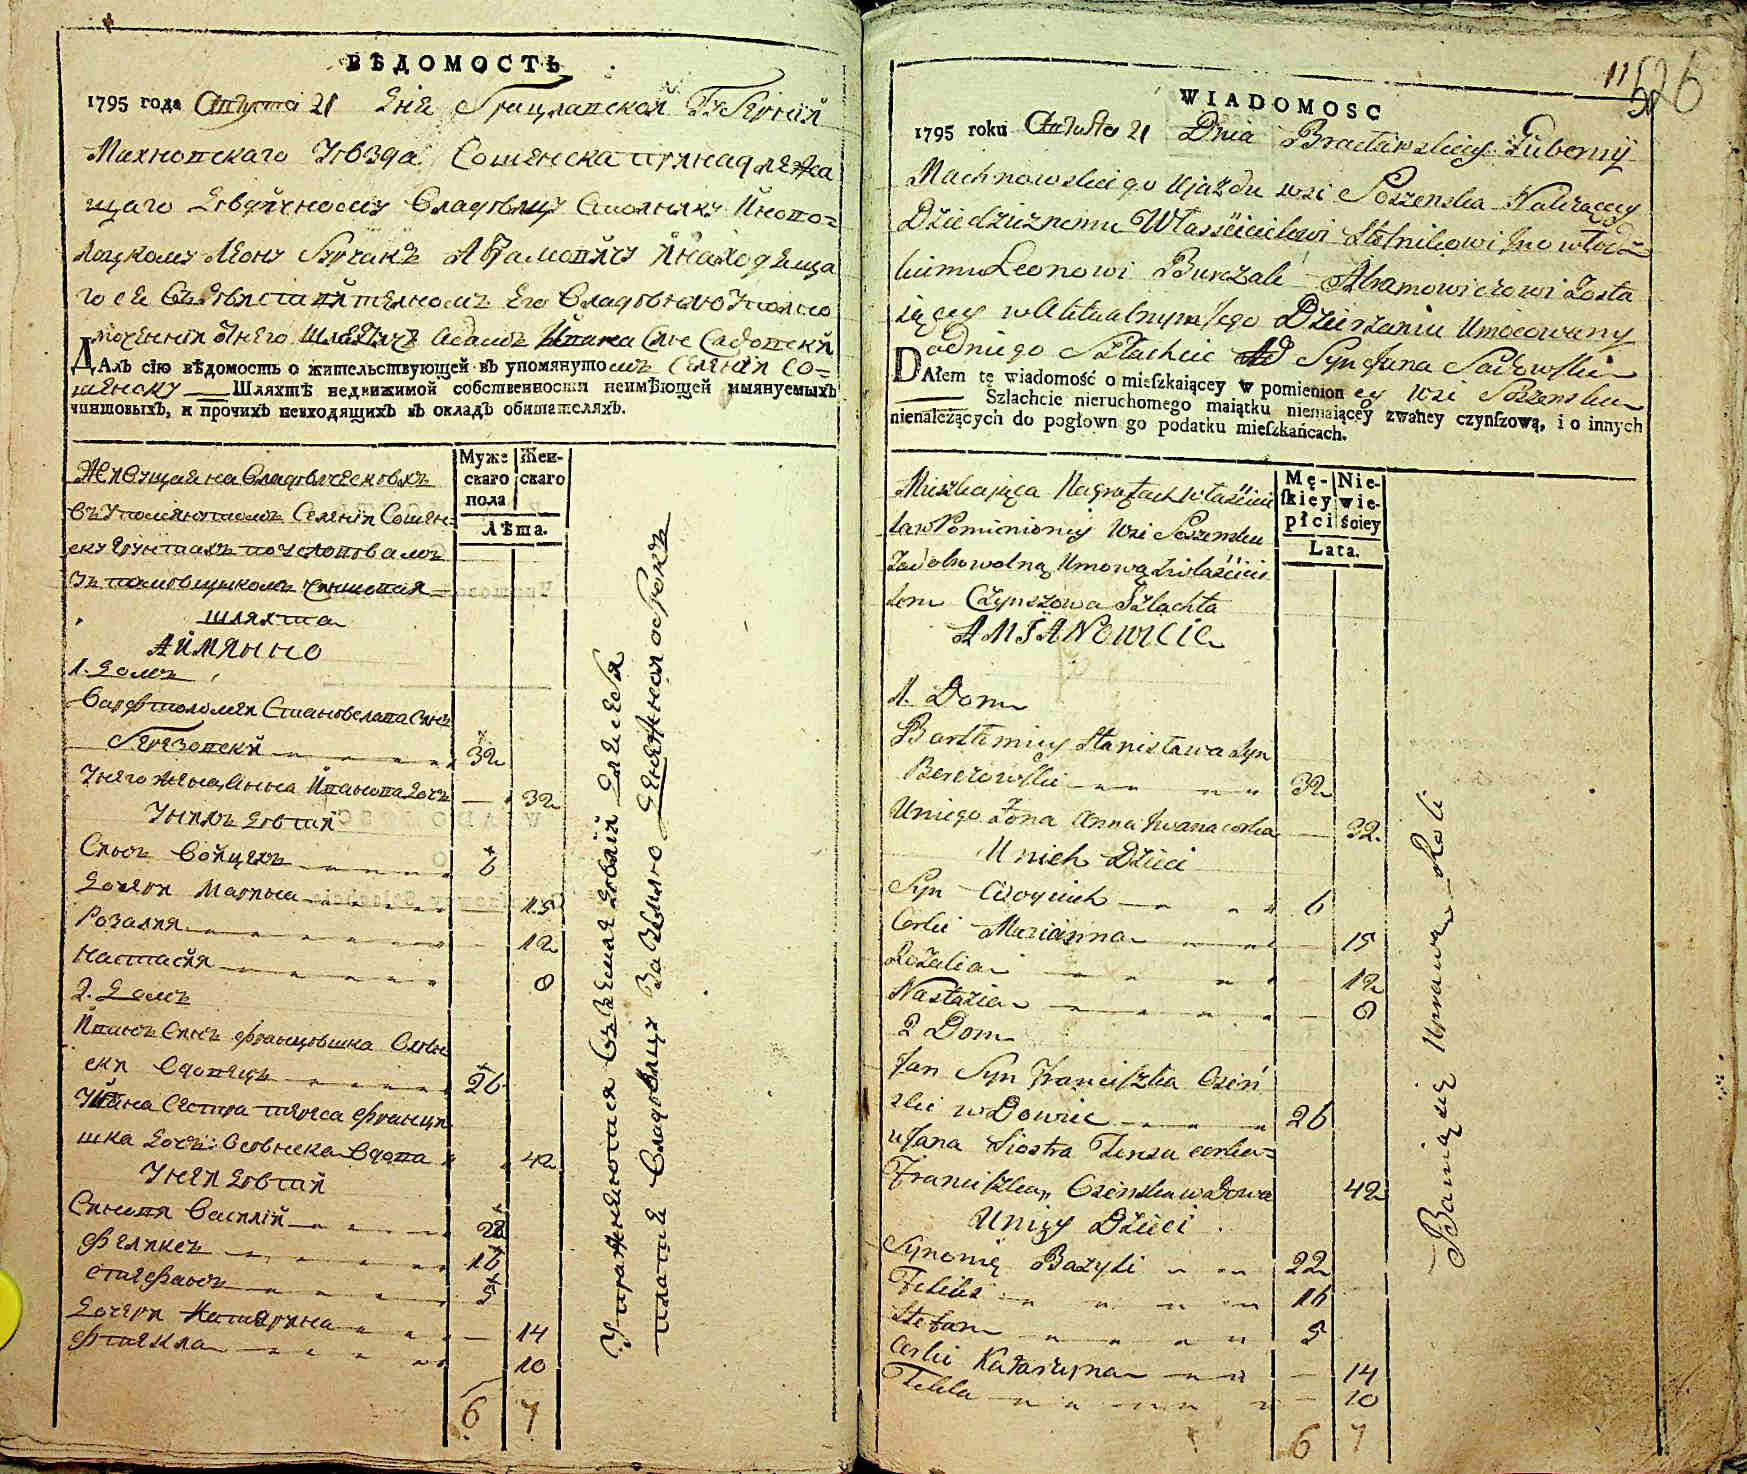 ВѢДОМОСТЬ
1795 года Августа 21 дня Брацлавской Губернии
Махновского Уезда Сошенска принадлежа
щаго дедичному Владелцу Столнику Иново-
лоцкому Леону Бурчаке Абрамовичу и находяща
гося въ действителномъ его владению уполно
моченний от него шляхтичъ Адамъ Ивана Синъ Садовски
ДАлъ сїю вѣдомость о жительствующей въ упомянутомъ селении Со-
шенску Шляхтѣ недвижимой собственности неимѣющей имянуемыхъ
чиншовыхъ, и прочихъ невходящихъ въ окладъ обитателяхъ.
Муже
скаго
пола
Жен-
скаго
Лѣта.
Живущая на владелческихъ
въ упомянутомъ селении Сошен-
ску грунтахъ по условиамъ
съ помещикомъ чиншовая
шляхта
А ИМЯННО
1. Домъ
Варфтоломей Станислава Синъ
Березовски 32
У него жена Анна Иванова дочъ 32
У нихъ дети
Синъ Войцехъ 6
Дочери Марянна 15
Розалия 12
Настасия 8
2. Домъ
Иванъ Синъ Францишка Осенъ
ски вдовецъ 26
У Ивана сестра Тереса Францы
шка дочъ Осенска вдова 42
У ней дети
Синовя Василий 22
Феликсъ 16
Стефанъ 5
Дочери Катерина 14
Фтекла 10
6 7
Упражнаютса въ земле делие
платя владелцу за землю денежной оброкъ
526
WIADOMOSC
1795 roku Augusta 21 Dnia Bracławskiey Gubernÿ
Machnowskiego Ujazdu wsi Soszenska Należącey
Dziedzicznemu Właścicielowi Stolnikowi Inowłodz
kiemu Leonowi Burczak Abramowiczowi Zosta
iącey w Aktualnym Jego Dzierżaniu Umocowany
od niego Szlachcic Ad Syn Jana Sadowski
DAłem tę wiadomość o mieſzkaiącey w pomienioney wsi Soszensku
Szlachcie nieruchomego maiątku niemaiącey zwaney czynſzową, i o innych
nienależących do pogłown go podatku mieſzkańcach.
Mę-
ſkiey
płci
Nie-
wie-
ściey
Lata.
Mieszkająca Na gruntach właścicie
la w Pomienioney wsi Soszensku
za dobrowolną umową z właścicie
lem Czynszowa Szlachta
AMIANOWICIE
1. Dom
Bartłomiey Stanisława Syn
Berezowski 32
U niego Żona Anna Iwana corka 32.
U nich Dzieci
Syn Woyciech 6
Corki Marianna 15
Rozalia 12
Nastazia 8
2 Dom
Jan Syn Franciſzka Osień
ski wdowiec 26
u Jana Siostra Teresa corka
Franciſzka Osienska wdowa 42
U niey Dzieci
Synowie Bazyli 22
Felix 16
Stefan 5
Corki Katarzyna 14
Tekla 10
6 7
Bawią się Uprawą Roli